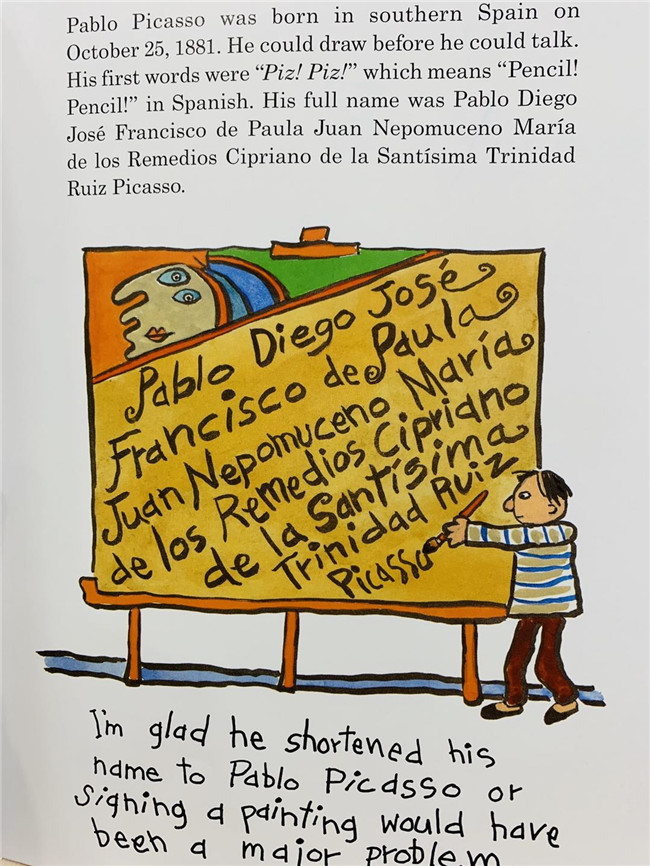 Pablo Picasso was born in southern Spain on
October 25, 1881. He could draw before he could talk.
His first words were “Piz! Piz!” which means “Pencil!
Pencil!” in Spanish. His full name was Pablo Diego
José Francisco de Paula Juan Nepomuceno María
de los Remedios Cipriano de la Santísima Trinidad
Ruiz Picasso.
Pablo Diego José
Francisco de Paula
Juan Nepomuceno María
de los Remedios Cipriano
de la Santísima
Trinidad Ruiz
Picasso
I'm glad he shortened his
name to Pablo Picasso or
signing a painting would have
been a major problem